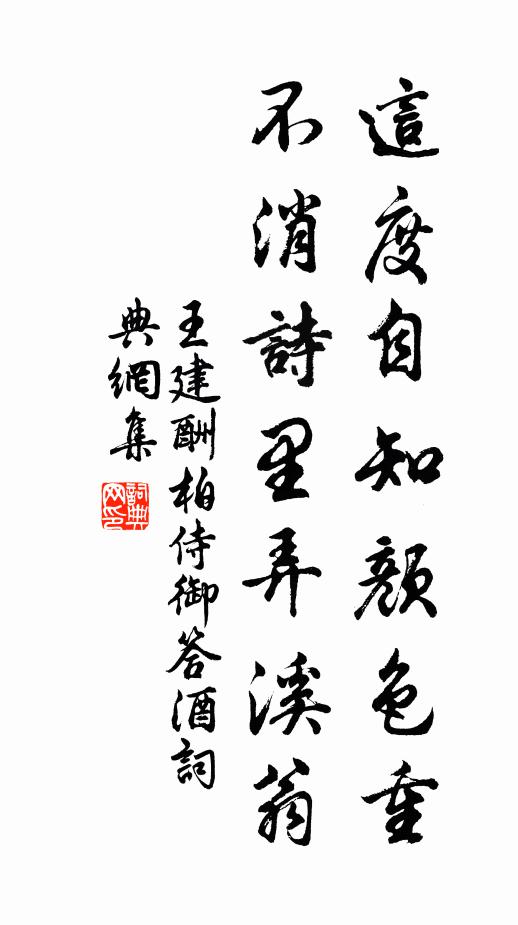 這度自知顏色重
不消詩里弄溪翁
王建酬柏侍御答酒詞
典網集
詞典網印